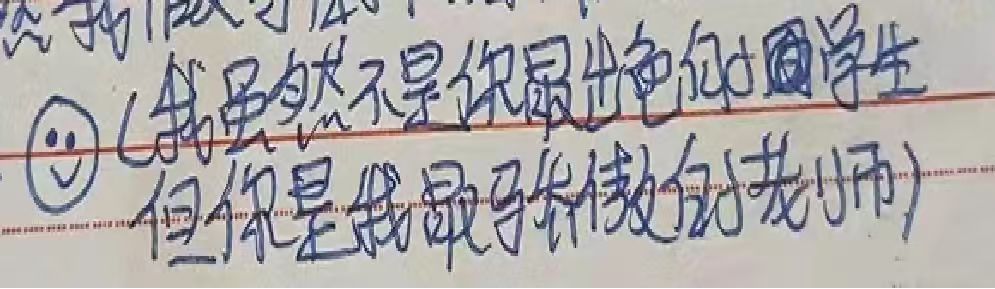 (我虽然不是你最出色的学生
但你是我最骄傲的老师)